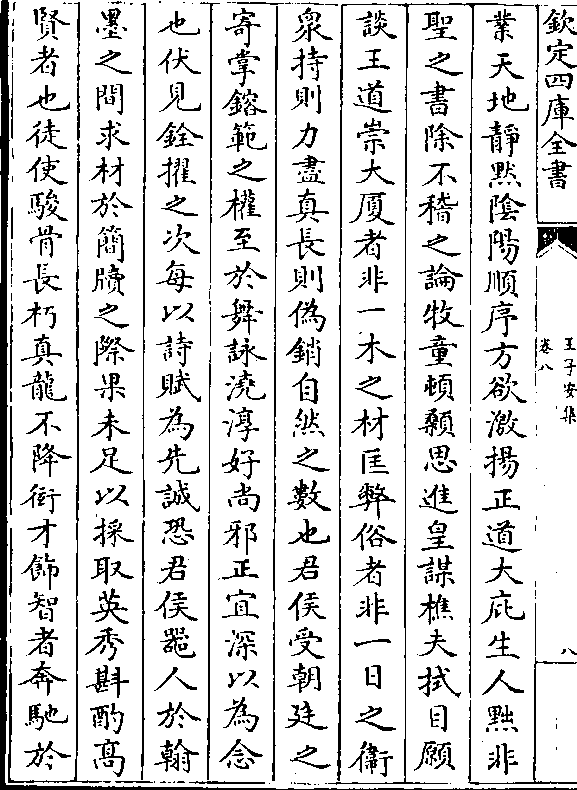 欽定四庫全書
王子安集
卷八
八
業天地靜黙陰陽順序方欲激揚正道大庇生人黜非
聖之書除不稽之論牧童頓顙思進皇謀樵夫拭目願
談王道崇大厦者非一木之材匡弊俗者非一日之衞
衆持則力盡真長則偽銷自然之數也君侯受朝廷之
寄掌鎔範之權至於舞詠澆淳好尚邪正宜深以為念
也伏見銓擢之次每以詩賦為先誠恐君侯器人於翰
墨之間求材於簡牘之際果未足以採取英秀斟酌高
賢者也徒使駿骨長朽真龍不降衒才飾智者奔馳於